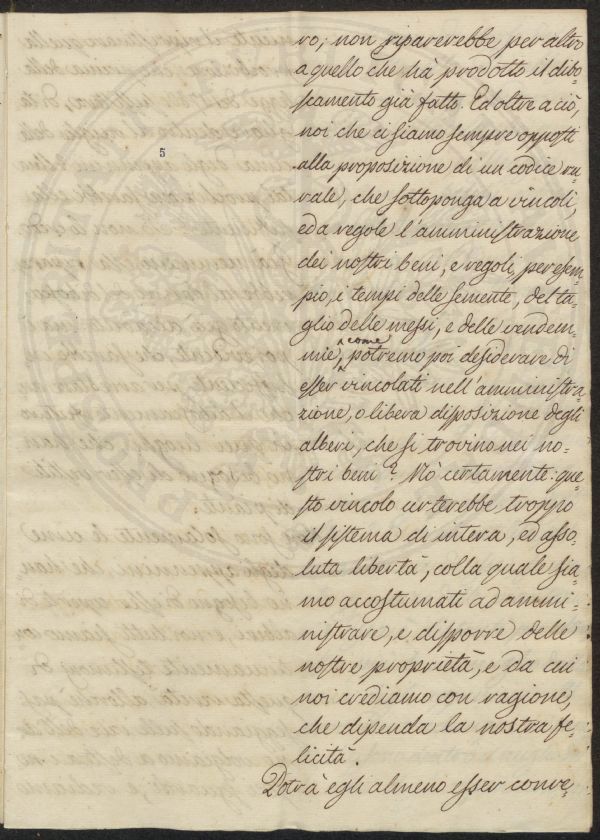 5
ro; non riparerebbe per altro
a quello che hà prodotto il disbo-
scamento già fatto. Ed oltre a ciò,
noi che ci siamo sempre opposti
alla proposizione di un codice ru
rale, che sottoponga a vincoli,
ed a regole l'amministrazione
dei nostri beni, e regoli, per esem-
pio, i tempi delle semente, del ta-
glio delle messi, e delle vendem-
mie, come potremo poi desiderare di
esser vincolati nell'amministra-
zione, o libera disposizione degli
alberi, che si trovino nei no-
stri beni? Nò certamente: que-
sto vincolo urterebbe troppo
il sistema di intera, ed asso-
luta libertà, colla quale sia-
mo accostumati ad ammi-
nistrare, e disporre delle
nostre proprietà, e da cui
noi crediamo con ragione,
che dipenda la nostra fe-
licità.
Potrà egli almeno esser conve-